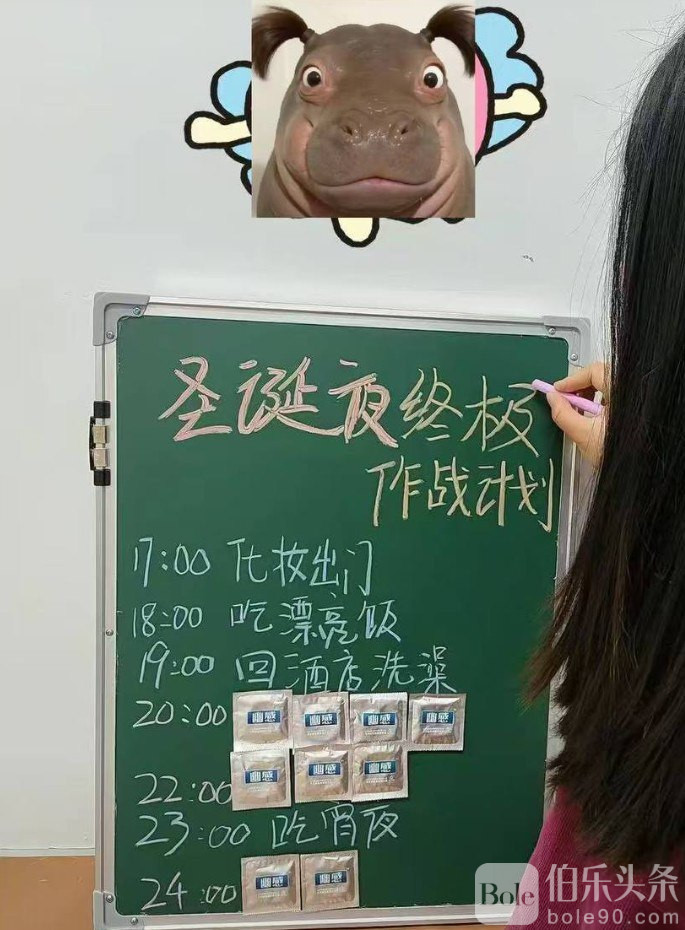 圣诞夜终极
作战计划
17:00 化妆出门
18:00 吃漂亮饭
19:00 回酒店洗澡
20:00
幽感 幽感 幽感 幽感
幽感 幽感 幽感
22:00
23:00 吃宵夜
24:00
幽感 幽感
Bole 伯乐头条
bole90.com